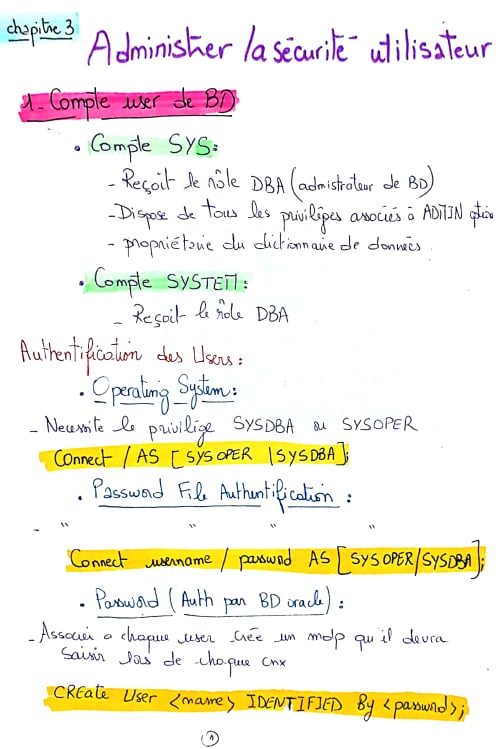 chapitre 3
Administrer la sécurité utilisateur
1- Compte user de BD
• Compte SYS:
- Reçoit le rôle DBA (admistrateur de BD)
- Dispose de tous les privilèges associés à ADMIN
- propriétaire du dictionnaire de données.
• Compte SYSTEM:
- Reçoit le rôle DBA
Authentification des Users:
• Operating System:
- Necessite le privilige SYSDBA ou SYSOPER
Connect / AS [SYSOPER | SYSDBA];
• Password File Authentification :
- " " " "
Connect username / password AS [SYSOPER/SYSDBA];
• Password (Auth par BD oracle) :
- Associer a chaque user crée un mdp qu'il devra
saisir lors de chaque cnx
CREate User <name> IDENTIFIED By <password>;
1